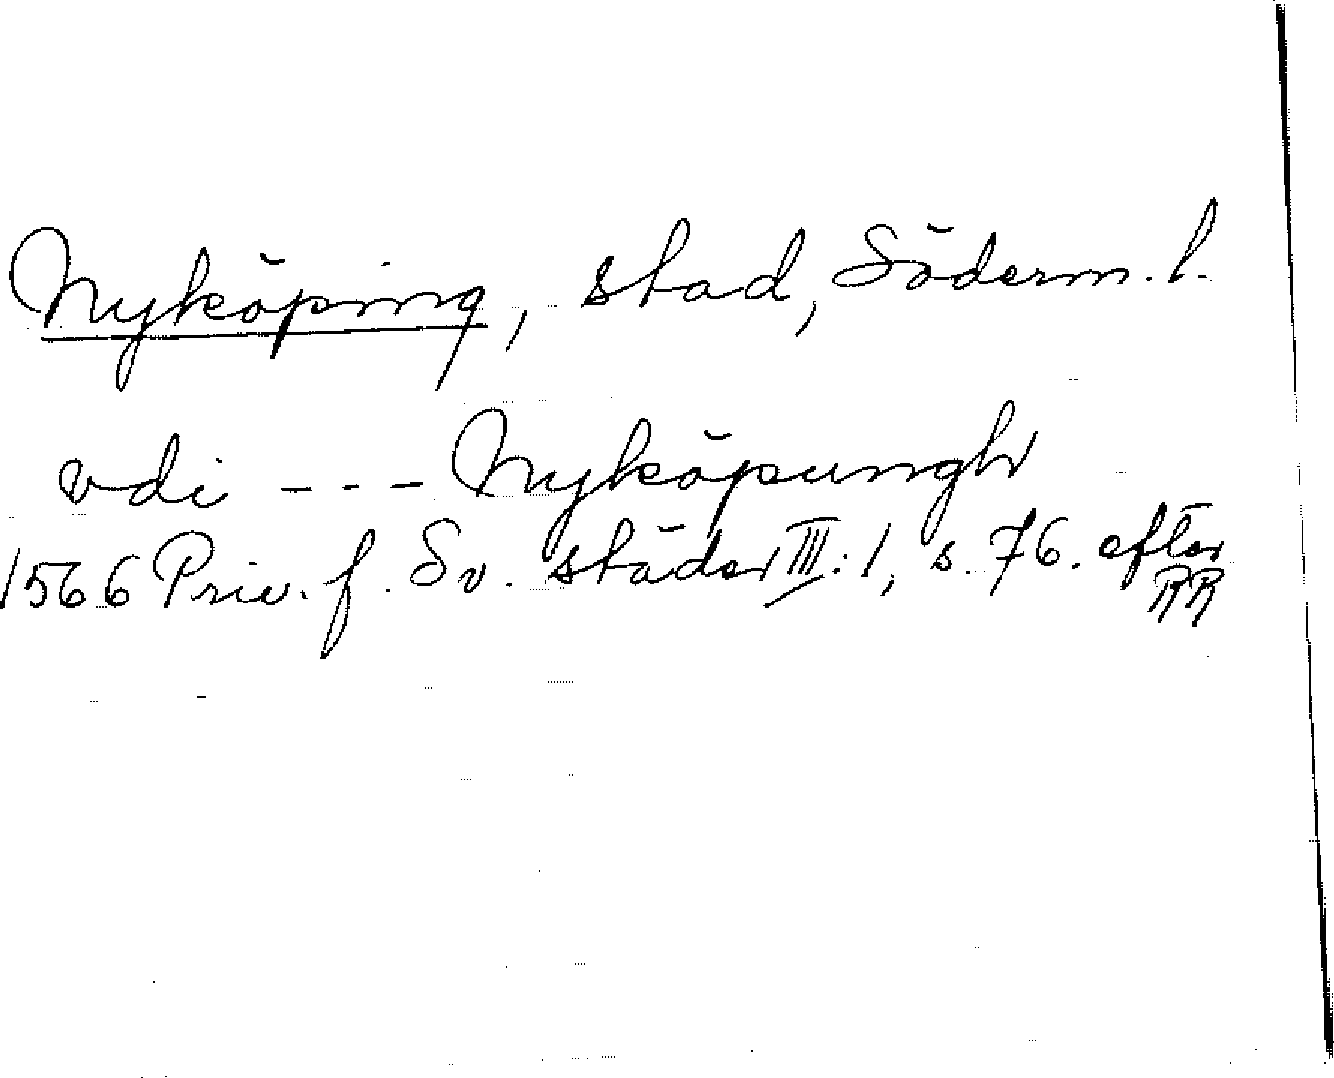 Nyköping, stad, Söderm. l.
vdi --- Nyköpungh
1566 Priv. f. Sv. städer III:1, s. 76. efter
RR